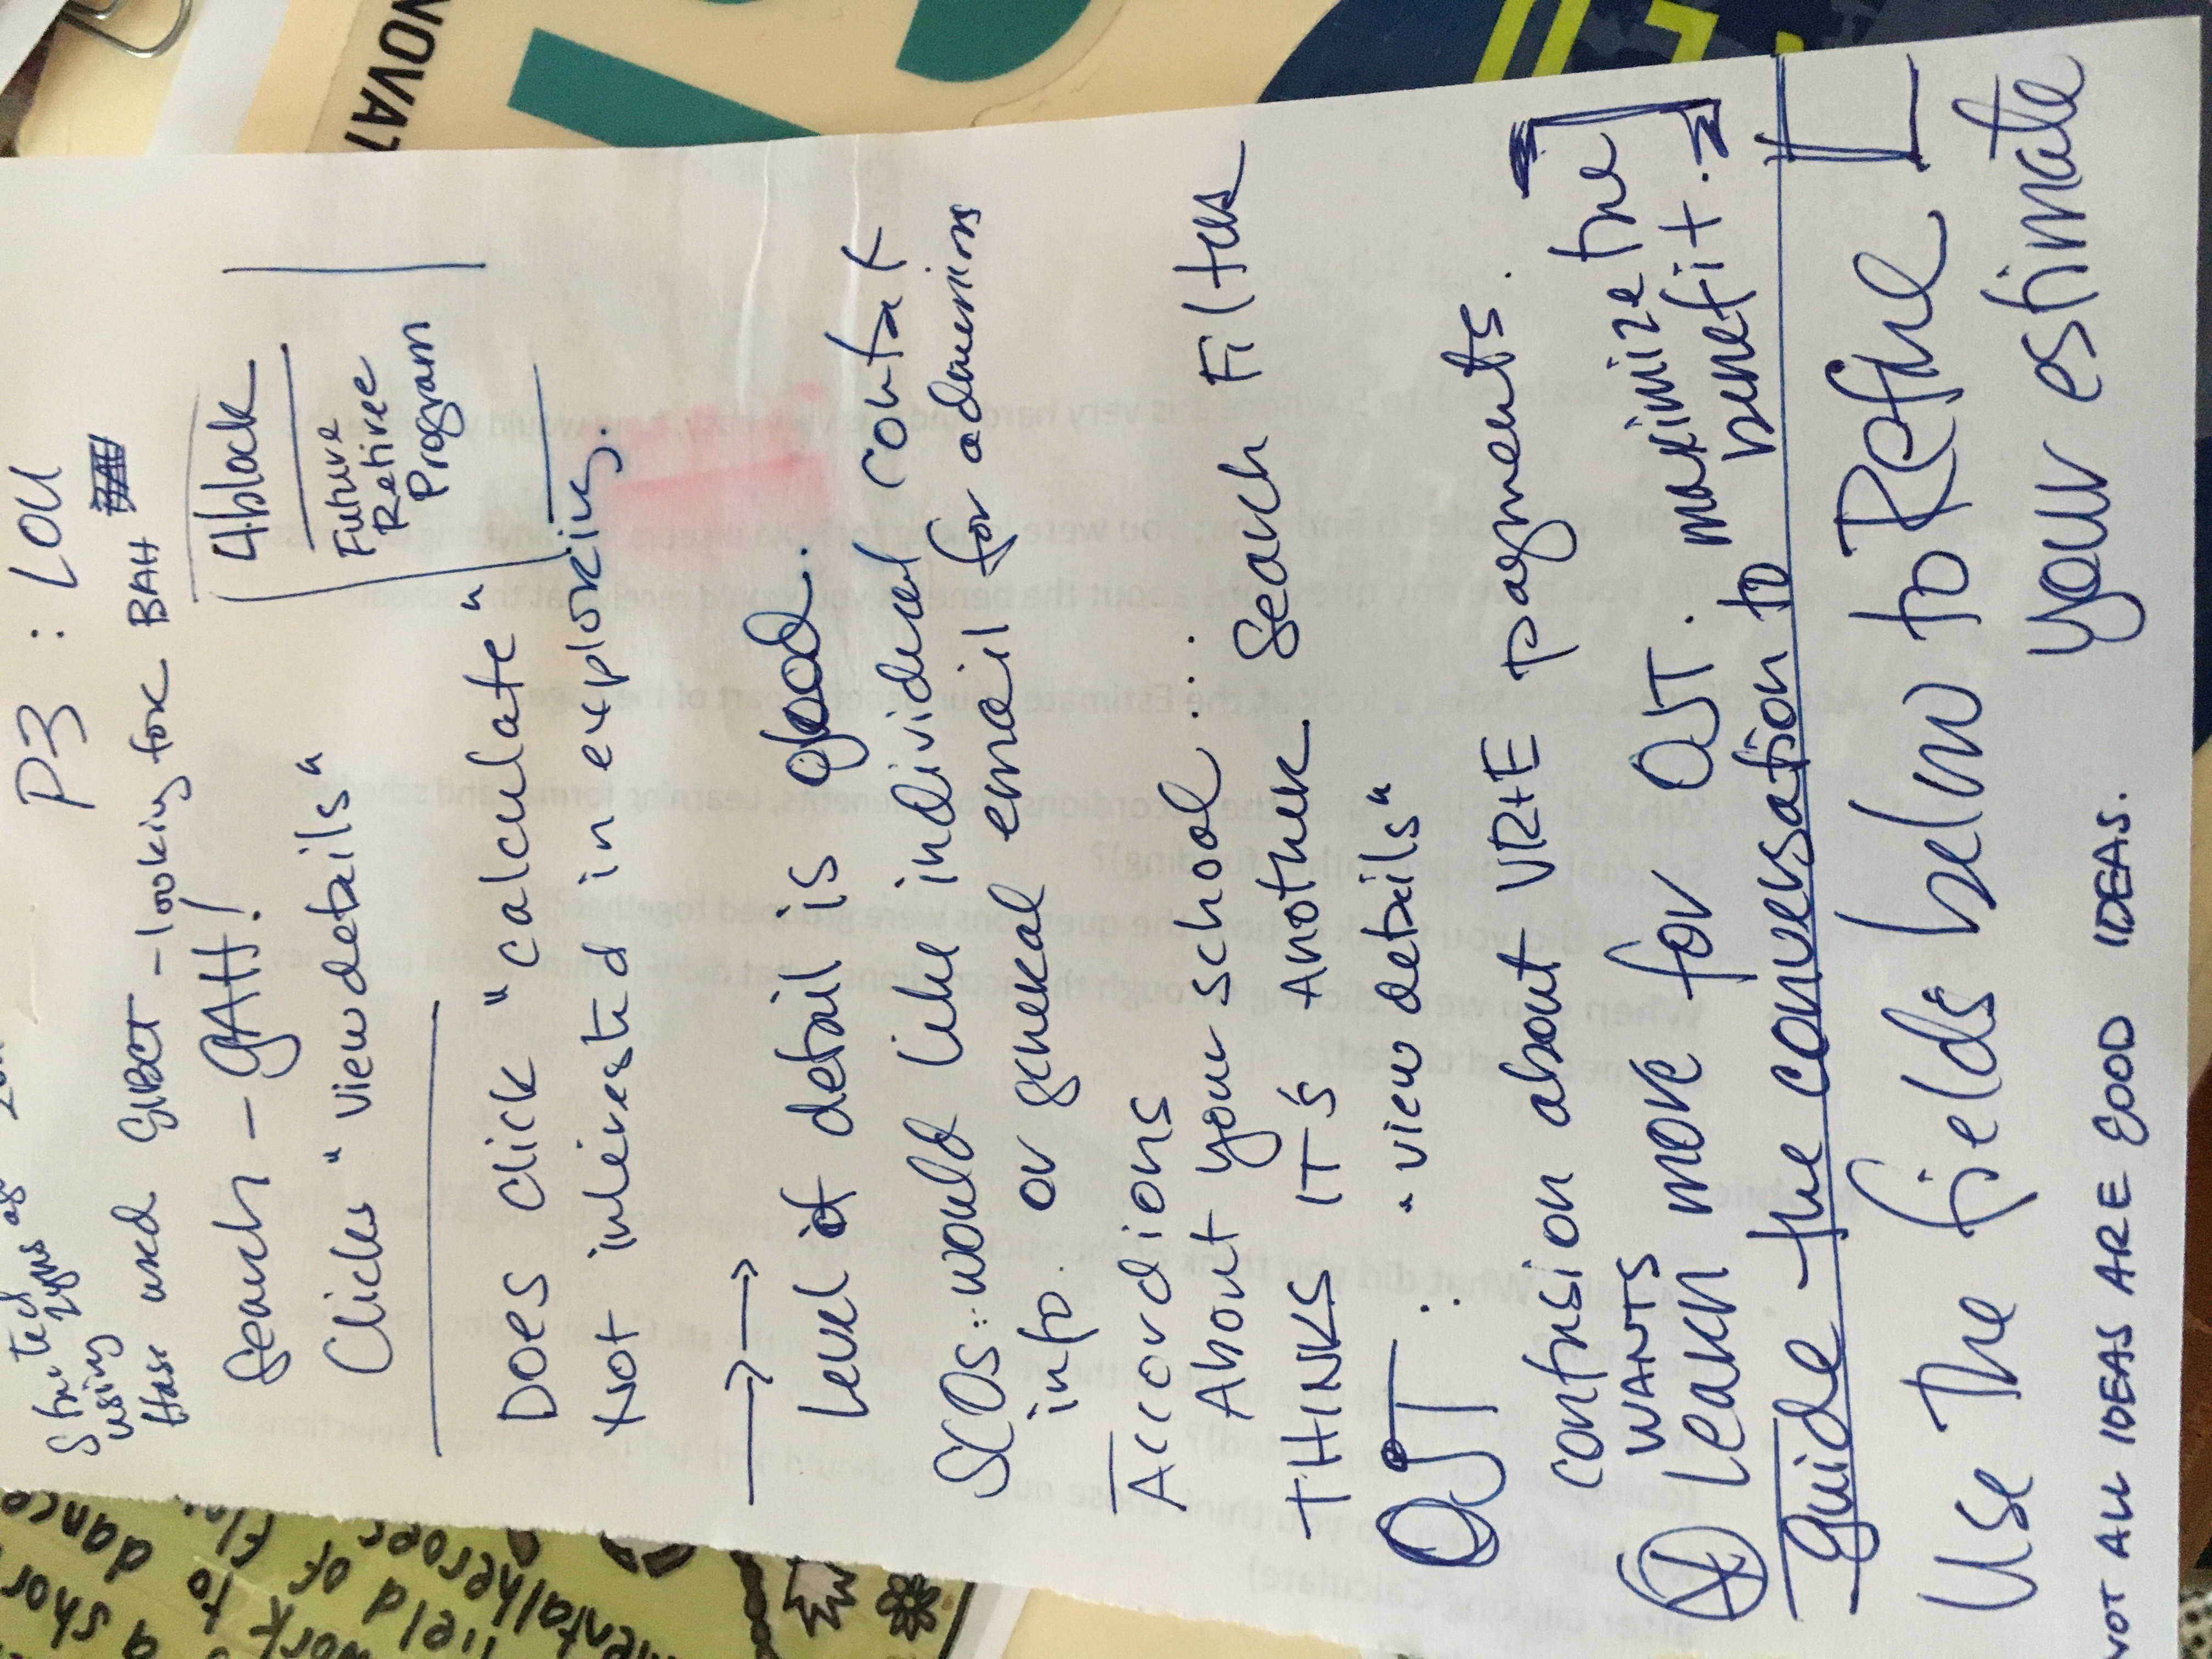 P3 : LOU
Started
using 2yrs ago
Has used GIBCT - looking for BAH BAU
Search - GAH!
Clicks "view details"
4block
Future
Retiree
Program
Does click "calculate"
Not interested in exploring.
Level of detail is good.
SCOs: would like individual contact
info. or general email for admissions
Accordions
About your school...
THINKS IT'S Another Search Filter
OJT : "view details"
confusion about VR+E payments.
WANTS
Learn more for OJT.
guide the conversation to maximize the
benefit.
Use the fields below to Refine
your estimate
NOT ALL IDEAS ARE GOOD IDEAS.
a shor
to dance
work
field of
mentalheroes
NOVAT